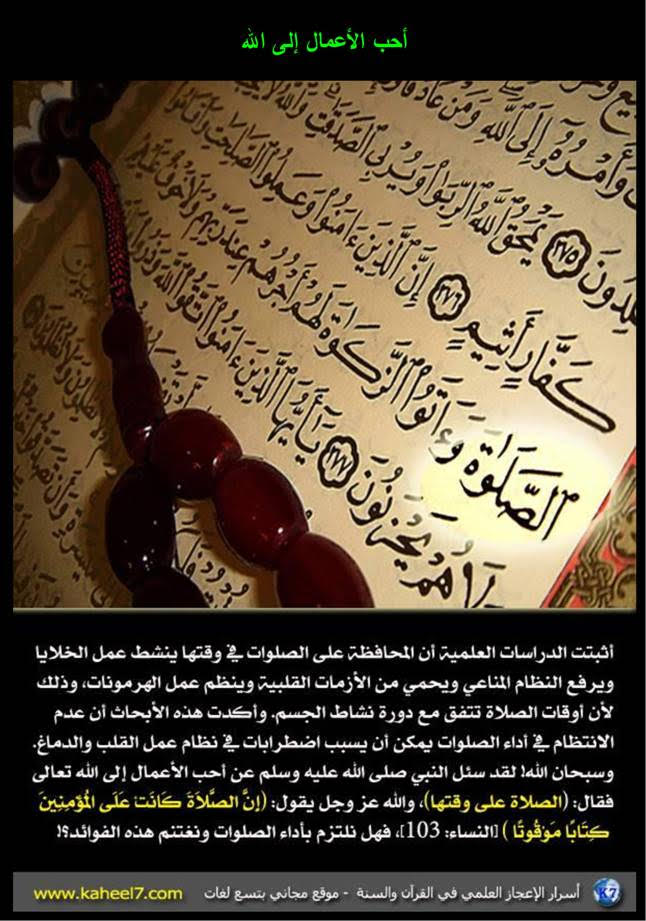 أحب الأعمال إلى الله
كَفَّارٍ أَثِيمٍ ٢٧٦ إِنَّ ٱلَّذِينَ ءَامَنُوا۟ وَعَمِلُوا۟ ٱلصَّٰلِحَٰتِ وَأَقَامُوا۟
ٱلصَّلَوٰةَ وَءَاتَوُا۟ ٱلزَّكَوٰةَ لَهُمْ أَجْرُهُمْ عِندَ رَبِّهِمْ وَلَا خَوْفٌ عَلَيْهِمْ
وَلَا هُمْ يَحْزَنُونَ ٢٧٧ يَٰٓأَيُّهَا ٱلَّذِينَ ءَامَنُوا۟ ٱتَّقُوا۟ ٱللَّهَ وَذَرُوا۟
أثبتت الدراسات العلمية أن المحافظة على الصلوات في وقتها ينشط عمل الخلايا
ويرفع النظام المناعي ويحمي من الأزمات القلبية وينظم عمل الهرمونات، وذلك
لأن أوقات الصلاة تتفق مع دورة نشاط الجسم. وأكدت هذه الأبحاث أن عدم
الانتظام في أداء الصلوات يمكن أن يسبب اضطرابات في نظام عمل القلب والدماغ.
وسبحان الله! لقد سئل النبي صلى الله عليه وسلم عن أحب الأعمال إلى الله تعالى
فقال: (الصلاة على وقتها)، والله عز وجل يقول: (إِنَّ الصَّلَاةَ كَانَتْ عَلَى الْمُؤْمِنِينَ
كِتَابًا مَوْقُوتًا) [النساء: 103]، فهل نلتزم بأداء الصلوات ونغتنم هذه الفوائد؟!
K7 أسرار الإعجاز العلمي في القرآن والسنة - موقع مجاني بتسع لغات www.kaheel7.com